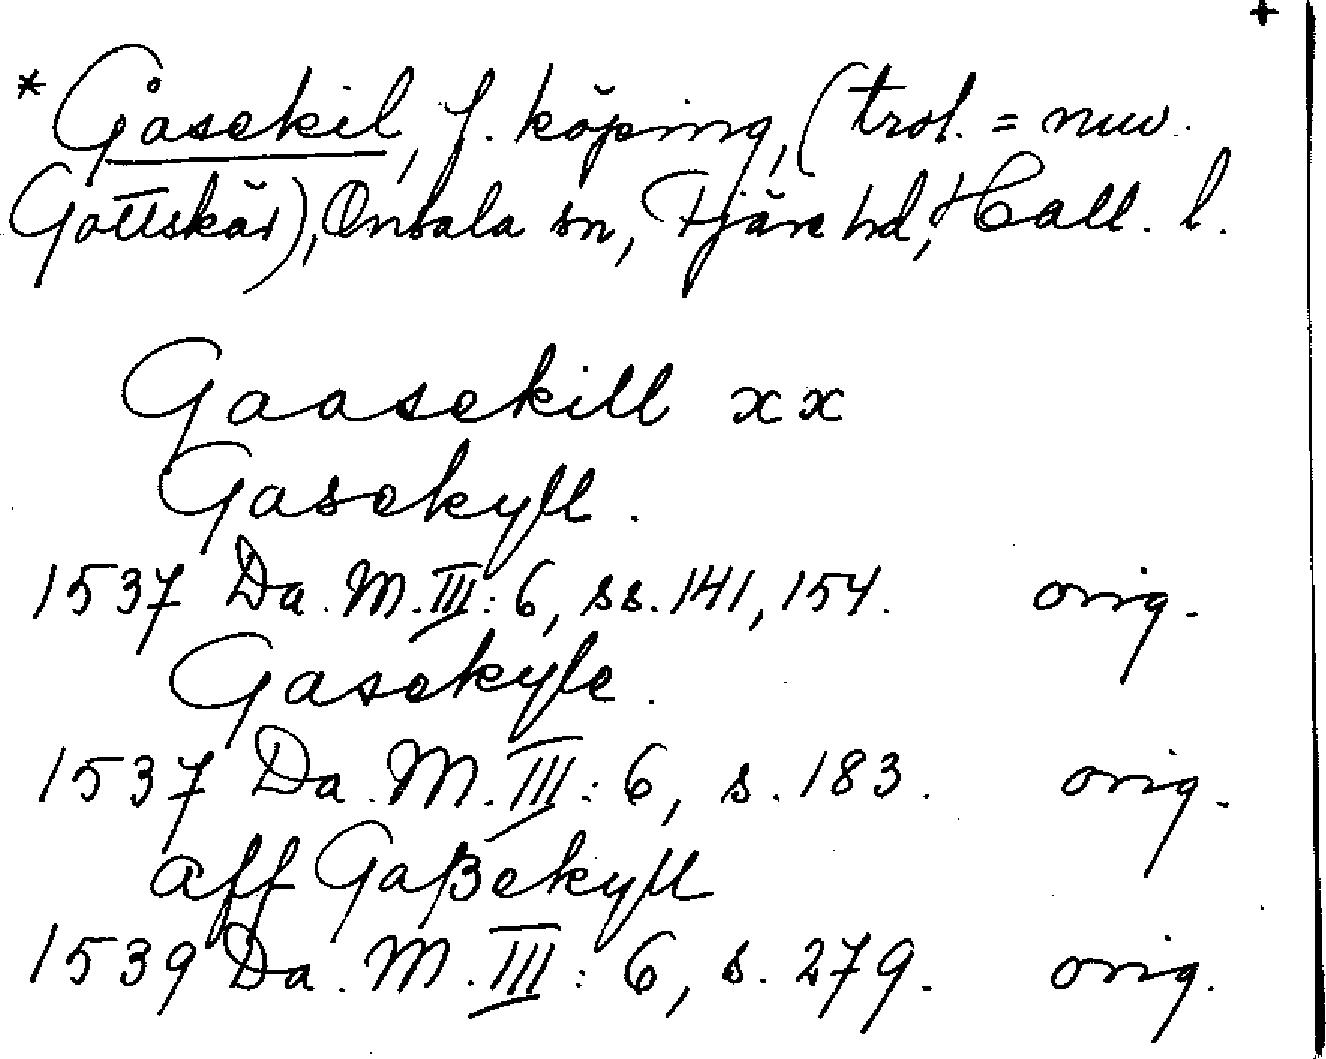 +
* Gåsekil, f. köping, (trol. = nuv.
Gottskär), Onsala sn, Fjäre hd, Hall. l.
Gaasekill xx
Gasekyll.
1537 Da. M. III: 6, ss. 141, 154. orig.
Gasekyle.
1537 Da. M. III: 6, s. 183. orig.
aff Gaßekyll
1539 Da. M. III: 6, s. 279. orig.